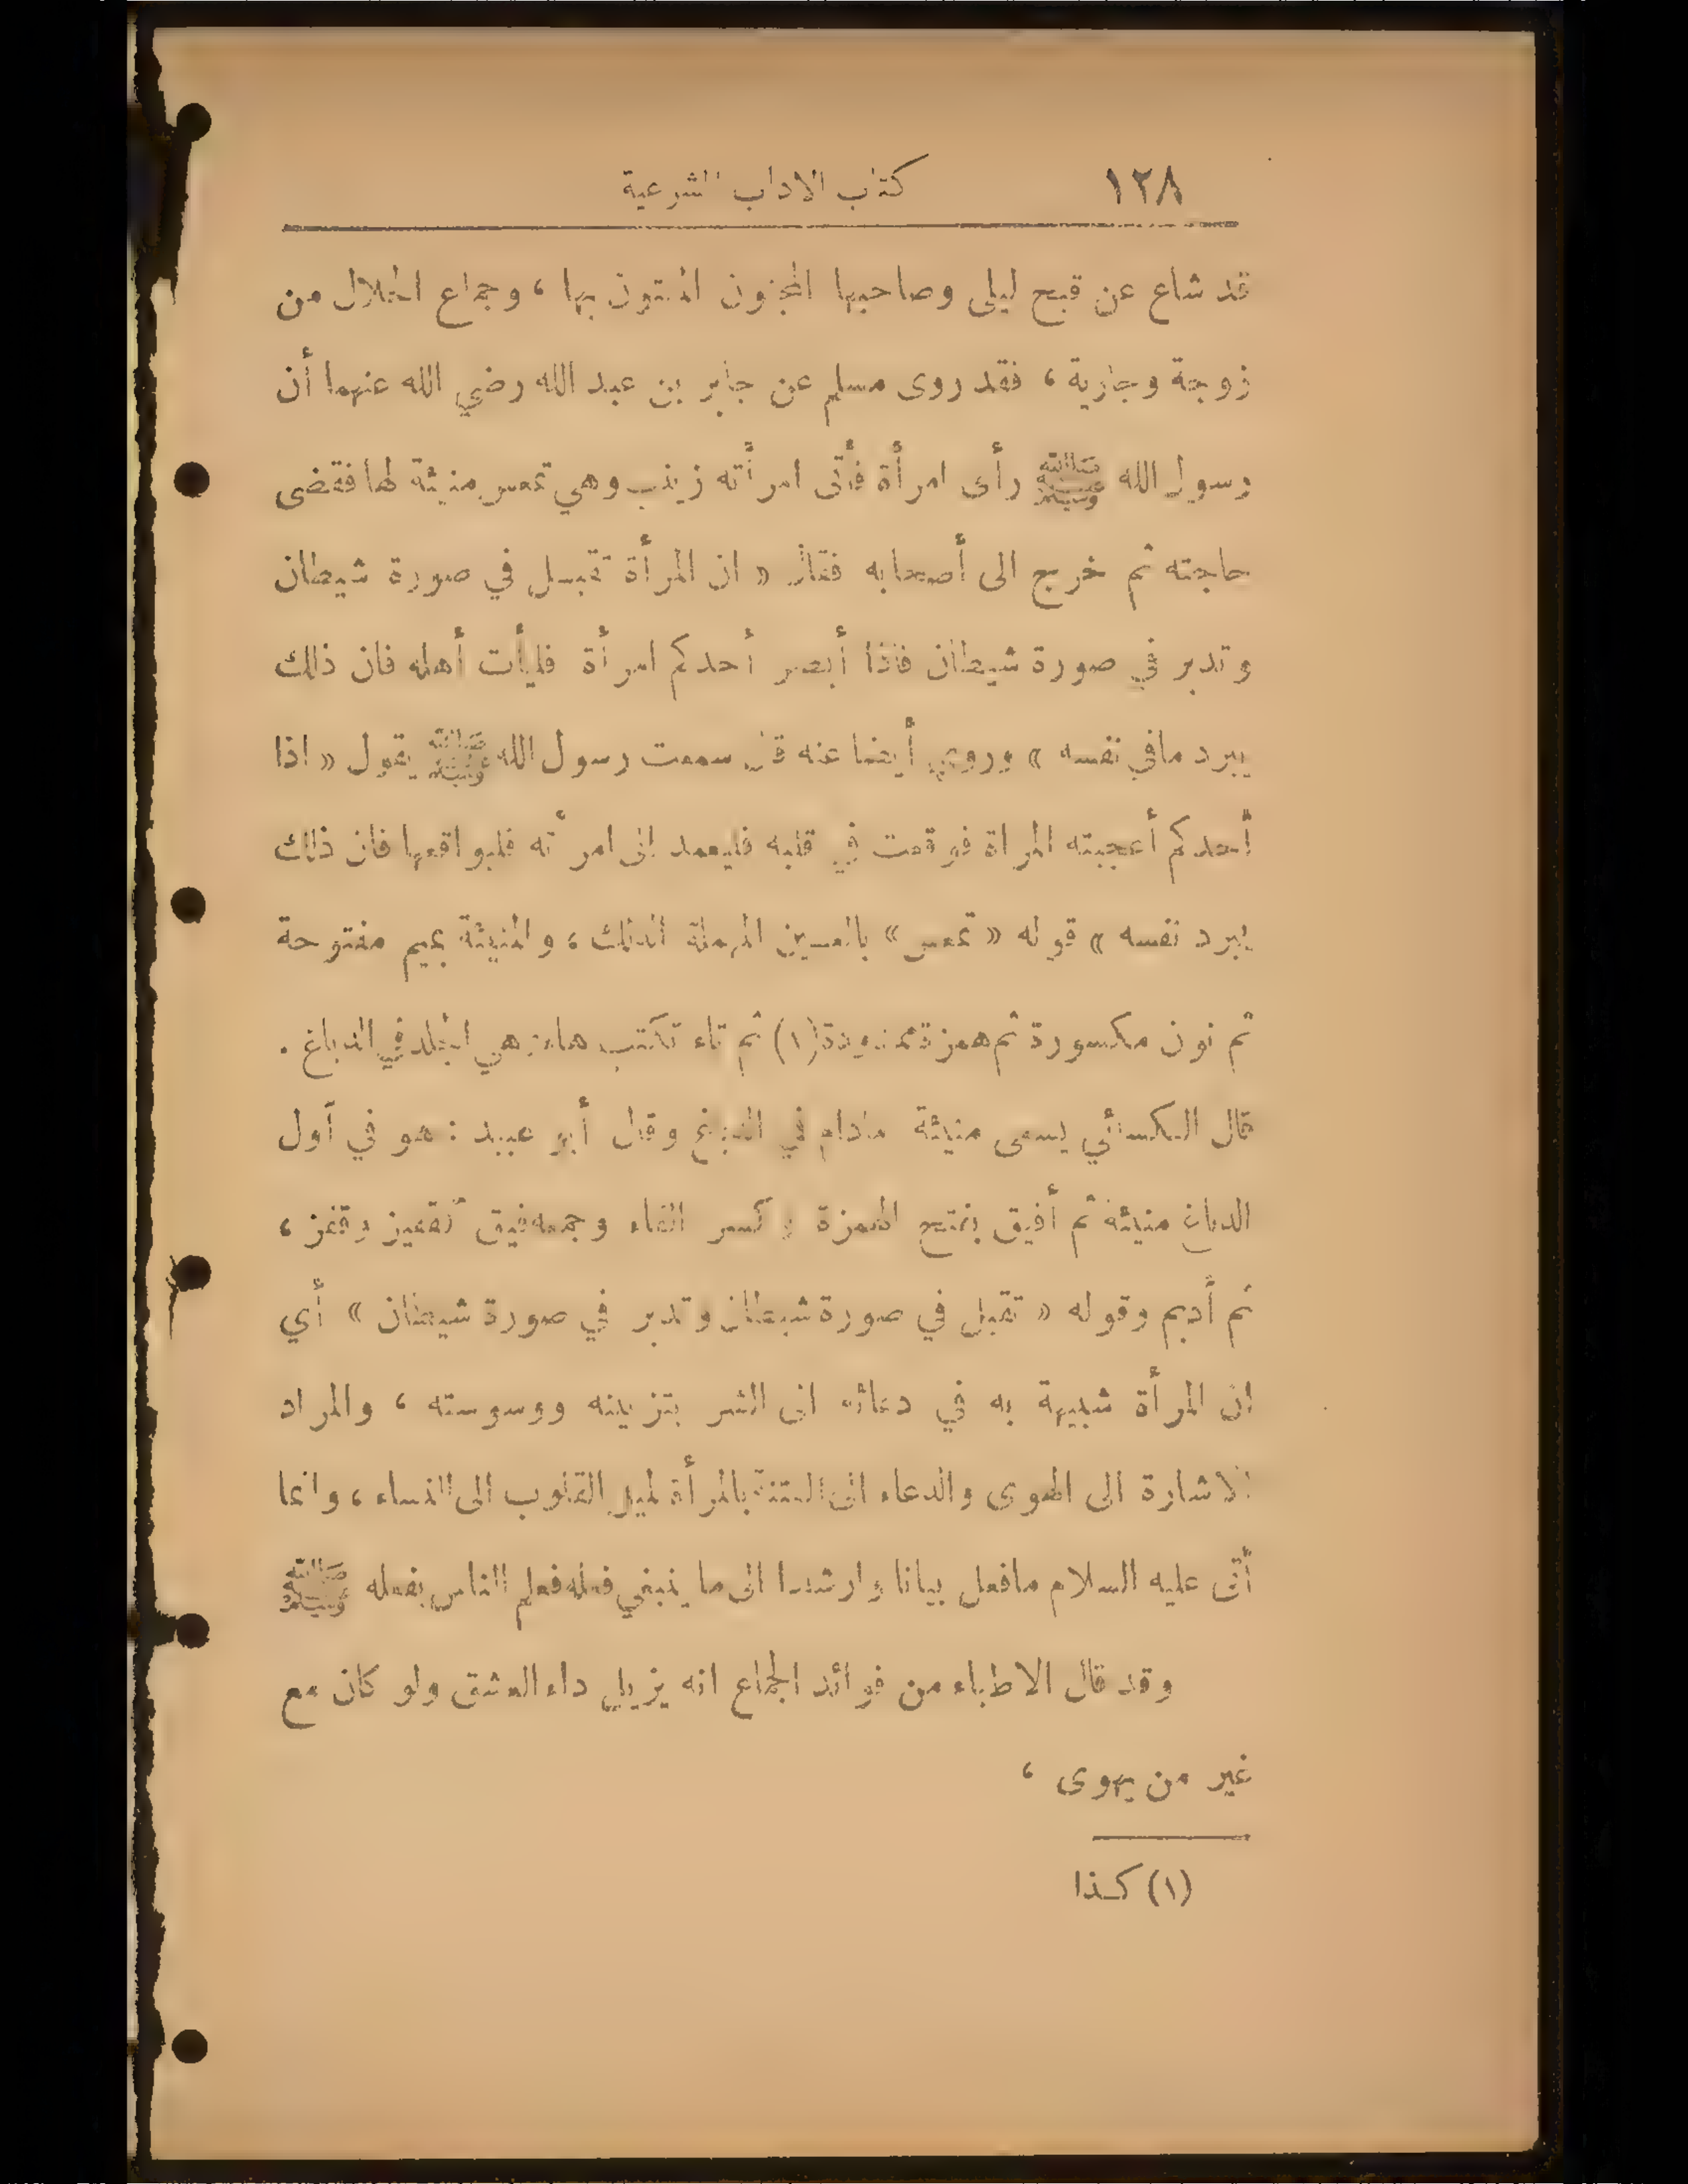 ١٢٨ كتاب الاداب الشرعية
قد شاع عن قبح ليلى وصاحبها المجنون المفتون بها ، وجماع الحلال من
زوجة وجارية ، فقد روى مسلم عن جابر بن عبد الله رضي الله عنهما أن
رسول الله ﷺ رأى امرأة فأتى امرأته زينب وهي تمعس منيئة لها فقضى
حاجته ثم خرج الى أصحابه فقال « ان المرأة تقبل في صورة شيطان
وتدبر في صورة شيطان فاذا أبصر أحدكم امرأة فليأت أهله فان ذلك
يبرد مافي نفسه » وروى أيضا عنه قال سمعت رسول الله ﷺ يقول « اذا
أحدكم أعجبته المراة فوقعت في قلبه فليعمد الى امرأته فليواقعها فان ذلك
يبرد نفسه » قوله « تمعس » بالعين المهملة الدلك ، والمنيئة بميم مفتوحة
ثم نون مكسورة ثم همزة ممدودة (١) ثم تاء تكتب هاء وهي الجلد في الدباغ .
قال الكسائي يسمى منيئة مادام في الدباغ وقال أبو عبيد : هو في أول
الدباغ منيئة ثم أفيق بفتح الهمزة وكسر الفاء وجمعه فيق كقفيز وقفز ،
ثم أديم وقوله « تقبل في صورة شيطان وتدبر في صورة شيطان » أي
ان المرأة شبيهة به في دعائه الى الشر بتزيينه ووسوسته ، والمراد
الاشارة الى الهوى والدعاء الى الفتنة بالمرأة لميل القلوب الى النساء ، وانما
أتى عليه السلام مافعل بيانا وارشادا الى ما ينبغي فعله فعلم الناس بفعله ﷺ
وقد قال الاطباء من فوائد الجماع انه يزيل داء العشق ولو كان مع
غير من يهوى ،
(١) كذا